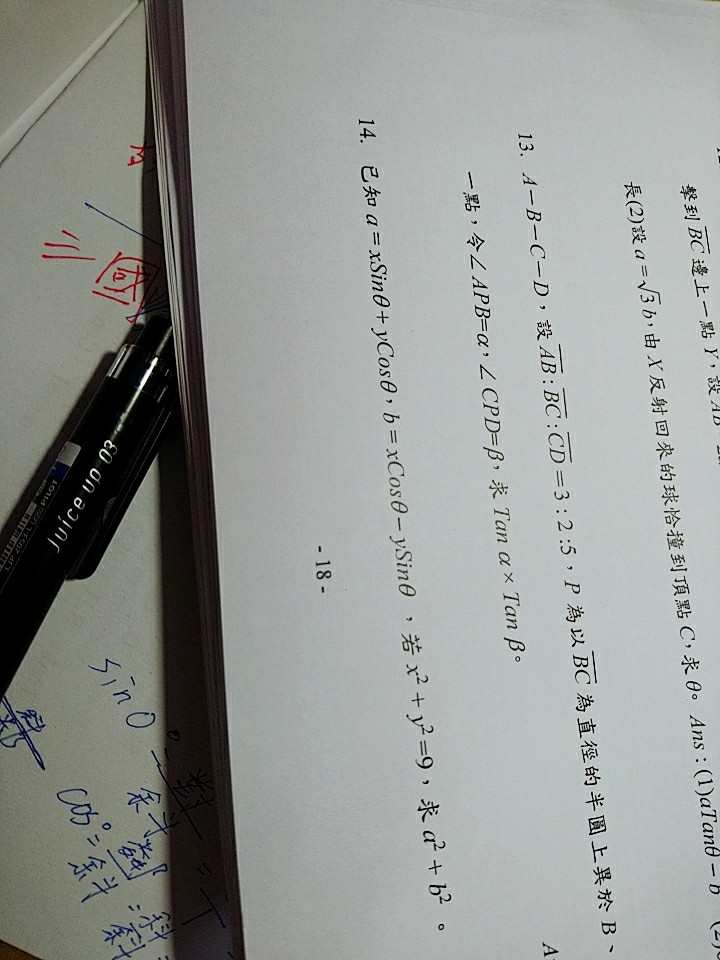 擊到BC邊上一點Y，設AB
長(2)設a=√3b，由X反射回來的球恰撞到頂點C，求θ。Ans：(1)aTanθ－b (2)
13. A－B－C－D，設AB:BC:CD=3:2:5，P為以BC為直徑的半圓上異於B、
一點，令∠APB=α，∠CPD=β，求Tan α×Tan β。
14. 已知a=xSinθ+yCosθ，b=xCosθ－ySinθ，若x²+y²=9，求a²+b²。
- 18 -
國
Juice up 03
PILOT
sinθ=對
斜
cosθ=